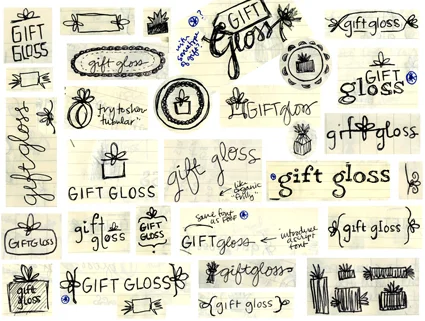 GIFT
GLOSS
gift gloss
?
GIFT
Gloss
gift gloss
GIFT
gloss
gift gloss
try to show
"tubular"
GIFT gloss
gift gloss
GIFT GLOSS
gift gloss
like
organic
"frilly"
gift gloss
GIFT GLOSS
gift
gloss
GIFT
GLOSS
same font
as FOSSE
GIFT gloss
introduce
a script
font
gift gloss
gift
gloss
GIFT GLOSS
giftgloss
{gift gloss}